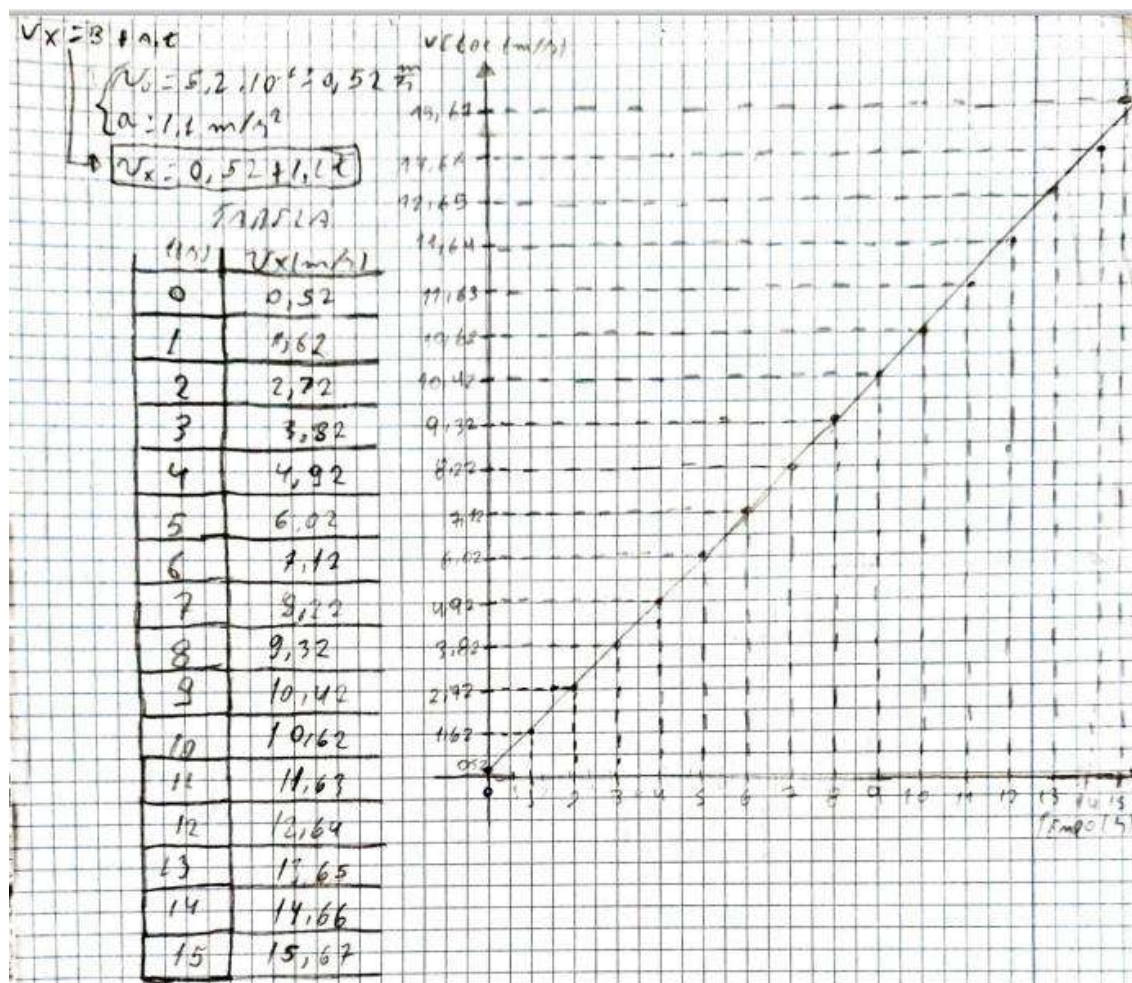 Vx = B + a.t
V₀ = 5,2 . 10⁻¹ = 0,52 m/s
a = 1,1 m/s²
Vx = 0,52 + 1,1t
TABELA
t(s) Vx(m/s)
0 0,52
1 1,62
2 2,72
3 3,82
4 4,92
5 6,02
6 7,12
7 8,22
8 9,32
9 10,42
10 10,62
11 11,63
12 12,64
13 13,65
14 14,66
15 15,67
Veloc (m/s)
12,65
11,64
11,63
10,62
10,42
9,32
8,22
7,12
6,02
4,92
3,82
2,72
1,62
0,52
0 1 2 3 4 5 6 7 8 9 10 11 12 13 14 15
Tempo (s)